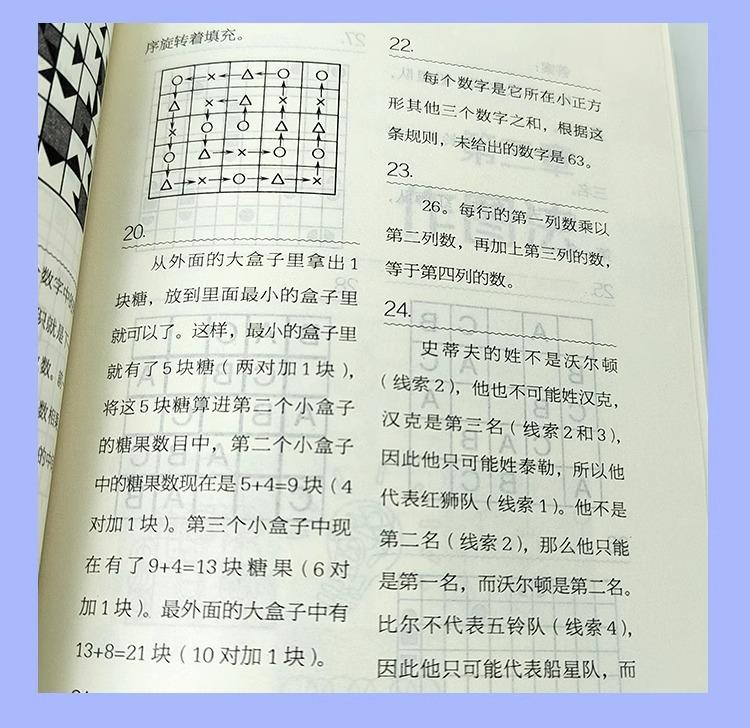 序旋转着填充。
20.
从外面的大盒子里拿出1
块糖，放到里面最小的盒子里
就可以了。这样，最小的盒子里
就有了5块糖（两对加1块），
将这5块糖算进第二个小盒子
的糖果数目中，第二个小盒子
中的糖果数现在是5+4=9块（4
对加1块）。第三个小盒子中现
在有了9+4=13块糖果（6对
加1块）。最外面的大盒子中有
13+8=21块（10对加1块）。
22.
每个数字是它所在小正方
形其他三个数字之和，根据这
条规则，未给出的数字是63。
23.
26。每行的第一列数乘以
第二列数，再加上第三列的数，
等于第四列的数。
24.
史蒂夫的姓不是沃尔顿
（线索2），他也不可能姓汉克，
汉克是第三名（线索2和3），
因此他只可能姓泰勒，所以他
代表红狮队（线索1）。他不是
第二名（线索2），那么他只能
是第一名，而沃尔顿是第二名。
比尔不代表五铃队（线索4），
因此他只可能代表船星队，而